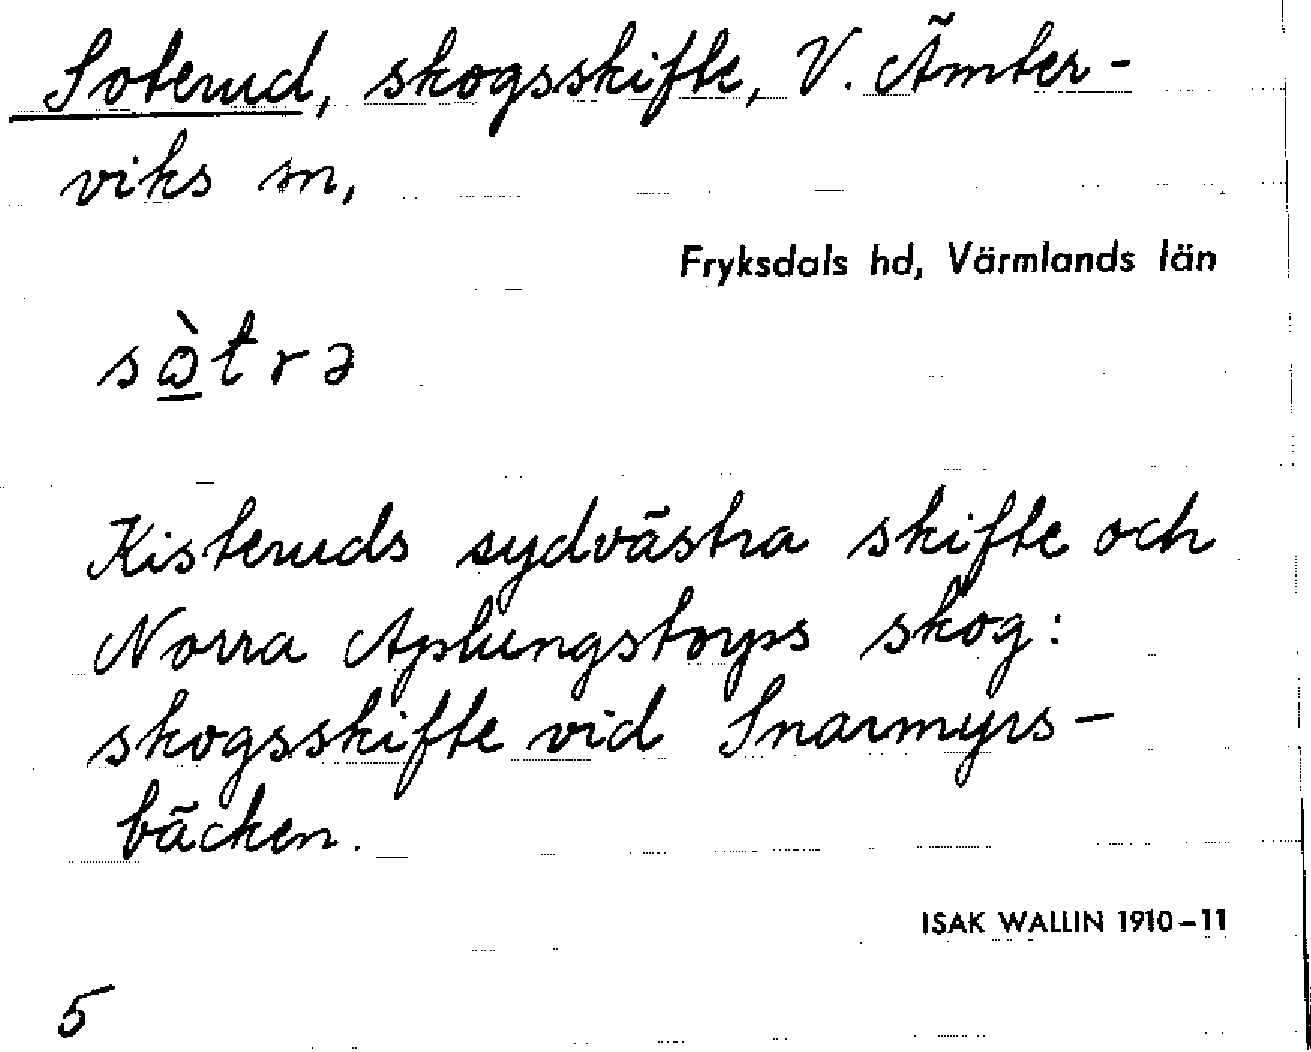 Soterud, skogsskifte, V. Ämter-
viks sn,
Fryksdals hd, Värmlands län
sɷ̀trə
Kisteruds sydvästra skifte och
Norra Aplungstorps skog:
skogsskifte vid Snarmyrs-
bäcken.
ISAK WALLIN 1910-11
5